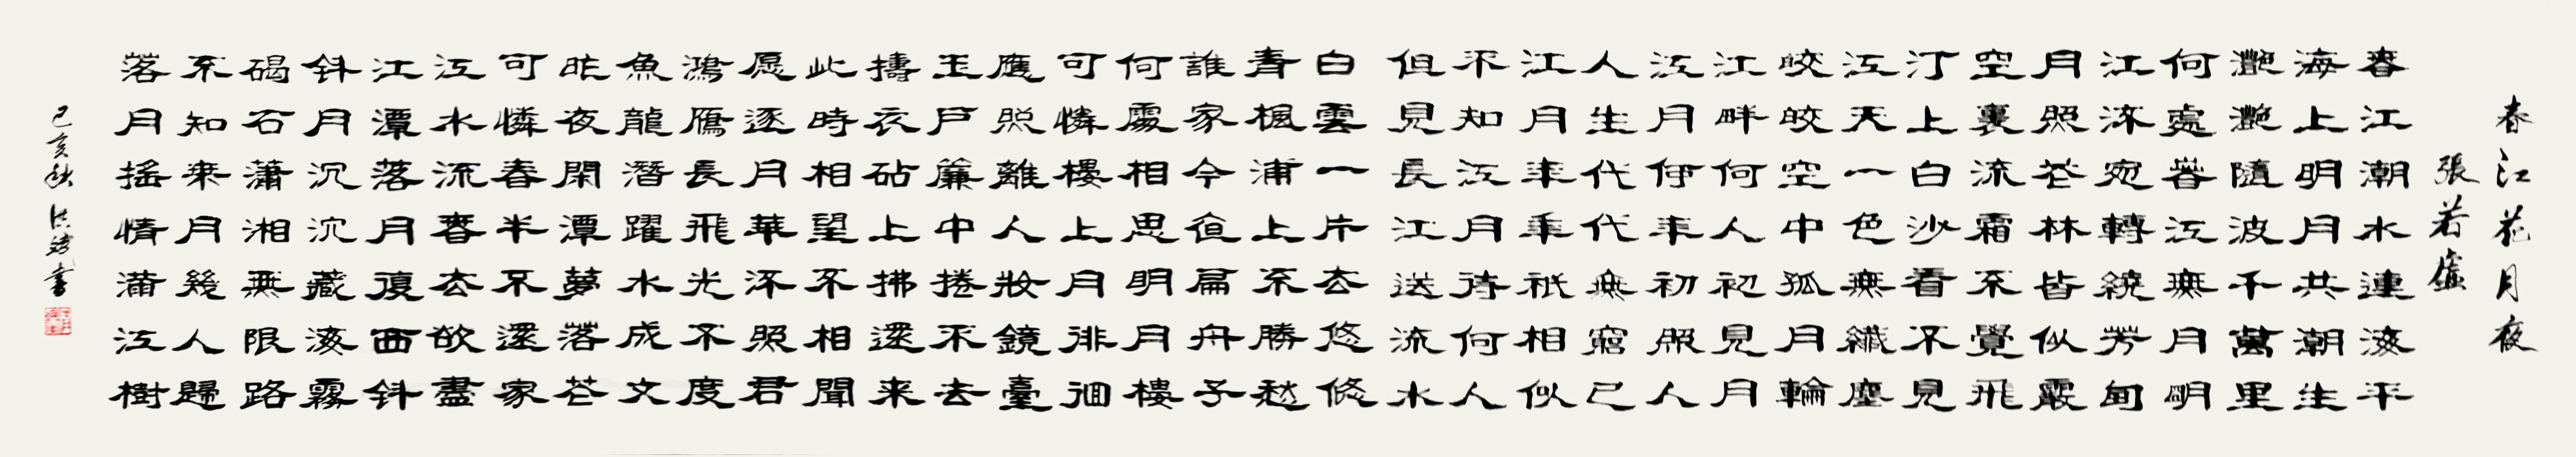 春江花月夜
張若虛
春江潮水連海平
海上明月共潮生
灩灩隨波千萬里
何處春江無月明
江流宛轉繞芳甸
月照花林皆似霰
空裏流霜不覺飛
汀上白沙看不見
江天一色無纖塵
皎皎空中孤月輪
江畔何人初見月
江月何年初照人
人生代代無窮已
江月年年祇相似
不知江月待何人
但見長江送流水
白雲一片去悠悠
青楓浦上不勝愁
誰家今夜扁舟子
何處相思明月樓
可憐樓上月徘徊
應照離人妝鏡臺
玉戶簾中捲不去
擣衣砧上拂還来
此時相望不相聞
愿逐月華流照君
鴻雁長飛光不度
魚龍潛躍水成文
昨夜閑潭夢落花
可憐春半不還家
江水流春去欲盡
江潭落月復西斜
斜月沉沉藏海霧
碣石瀟湘無限路
不知乘月幾人歸
落月搖情滿江樹
己亥秋洪書